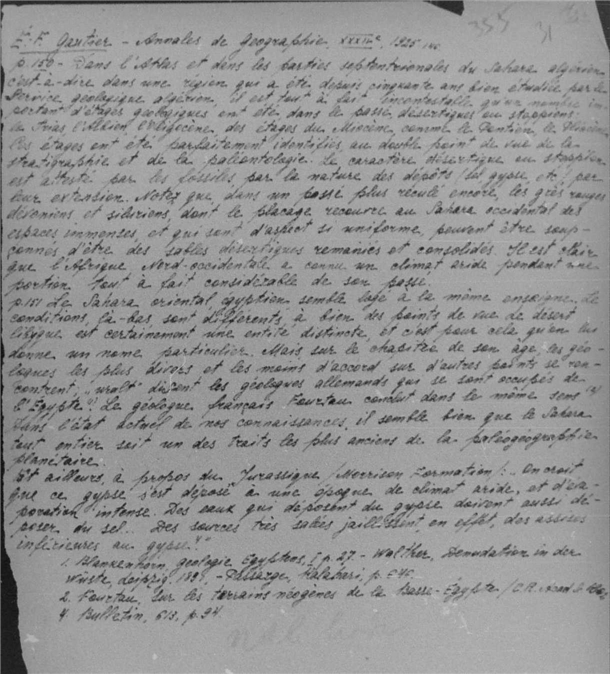 355 31
E. F. Gautier - Annales de Geographie, XXXIVe, 1925
p.150 - Dans l'Atlas et dans les parties septentrionales du Sahara algérien
c'est-à-dire dans une région qui a été depuis cinquante ans bien étudiée par le
Service géologique algérien, il est tout à fait incontestable qu'un nombre im
portant d'étages géologiques ont été dans le passé désertiques ou steppiens:
le Trias, l'Albien, l'Oligocène, des étages du Miocène comme le Pontien, le Pliocène
Ces étages ont été parfaitement identifiés au double point de vue de la
stratigraphie et de la paléontologie. Le caractère désertique ou steppien
est attesté par les fossiles par la nature des dépôts (les gypse etc.) par
leur extension. Notez que, dans un passé plus reculé encore, les grès rouges
dévoniens et siluriens, dont le placage recouvre au Sahara occidental des
espaces immenses, et qui sont d'aspect si uniforme, peuvent être soup-
çonnés d'être des sables désertiques remaniés et consolidés. Il est clair
que l'Afrique Nord-occidentale a connu un climat aride pendant une
portion tout à fait considérable de son passé.
p.151 Le Sahara oriental, egyptien semble logé à la même enseigne. Le
conditions, là-bas sont différents, à bien des points de vue le désert
libyque est certainement une entité distincte, et c'est pour cela qu'on lui
donne un nome particulier. Mais, sur le chapitre de son âge, les géo-
logues les plus divers et les moins d'accord sur d'autres points se ren-
contrent, "uralt" disent les géologues allemands qui se sont occupés de
l'Egypte". Le géologue français Fourtau conclut dans le même sens (2)
Dans l'état actuel de nos connaissances, il semble bien que le Sahara
tout entier soit un des traits les plus anciens de la paléogéographie
planétaire.
Et ailleurs, à propos du "Jurassique /Morrison Formation/: - On croit
que ce gypse s'est déposé à une époque de climat aride, et d'éva-
poration intense. Des eaux qui déposent du gypse doivent aussi dé-
poser du sel... Des sources très salées jaillissent en effet, des assises
inférieures au gypse."
1. Blankenhorn, Geologie Egyptens, I p. 27. - Walther, Denudation in der
Wüste, Leipzig, - Passarge, Kalahari, p.
2. Fourtau, Sur les terrains néogènes de la Basse-Egypte /C.R. Acad.
4. Bulletin, 613, p. 94.